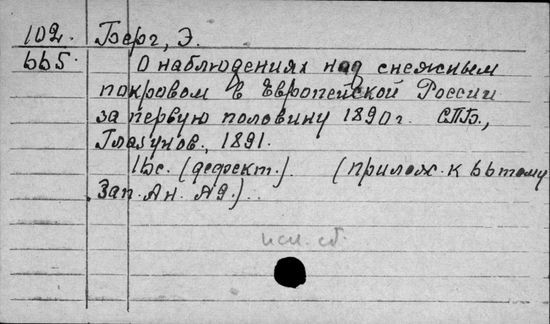 102. Берг, Э.
665. О наблюдениях над снежным
покровом в Европейской России
за первую половину 1890 г. СПБ.,
Глазунов., 1891.
16с. (дефект.) (прилож. к 66 тому
Зап. Ак. Ад.)